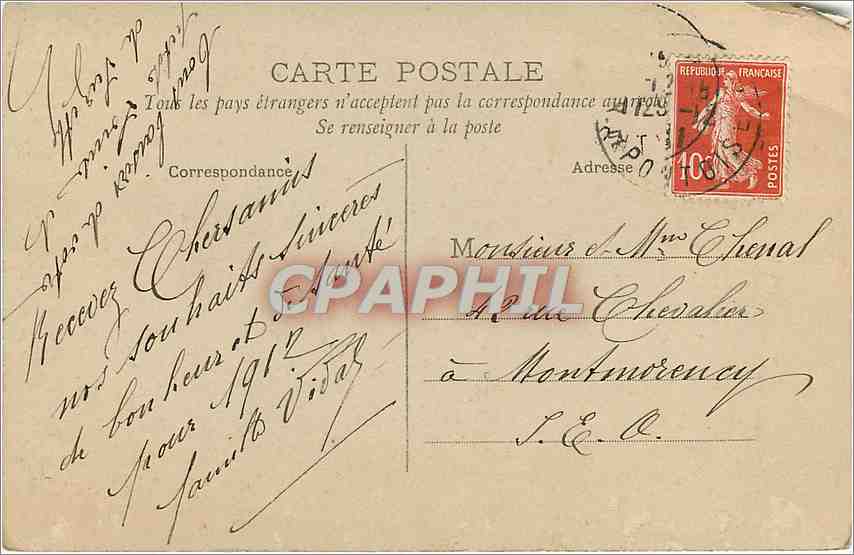 CARTE POSTALE
Tous les pays étrangers n'acceptent pas la correspondance au recto
Se renseigner à la poste
Correspondance
Adresse
REPUBLIQUE FRANÇAISE
10c
POSTES
Recevez Chers amis
nos souhaits sincères
de bonheur et de santé
pour 1912
famille Vidal
Monsieur et Mme Chenal
42 rue Chevalier
à Montmorency
S. E. O.
CPAPHIL